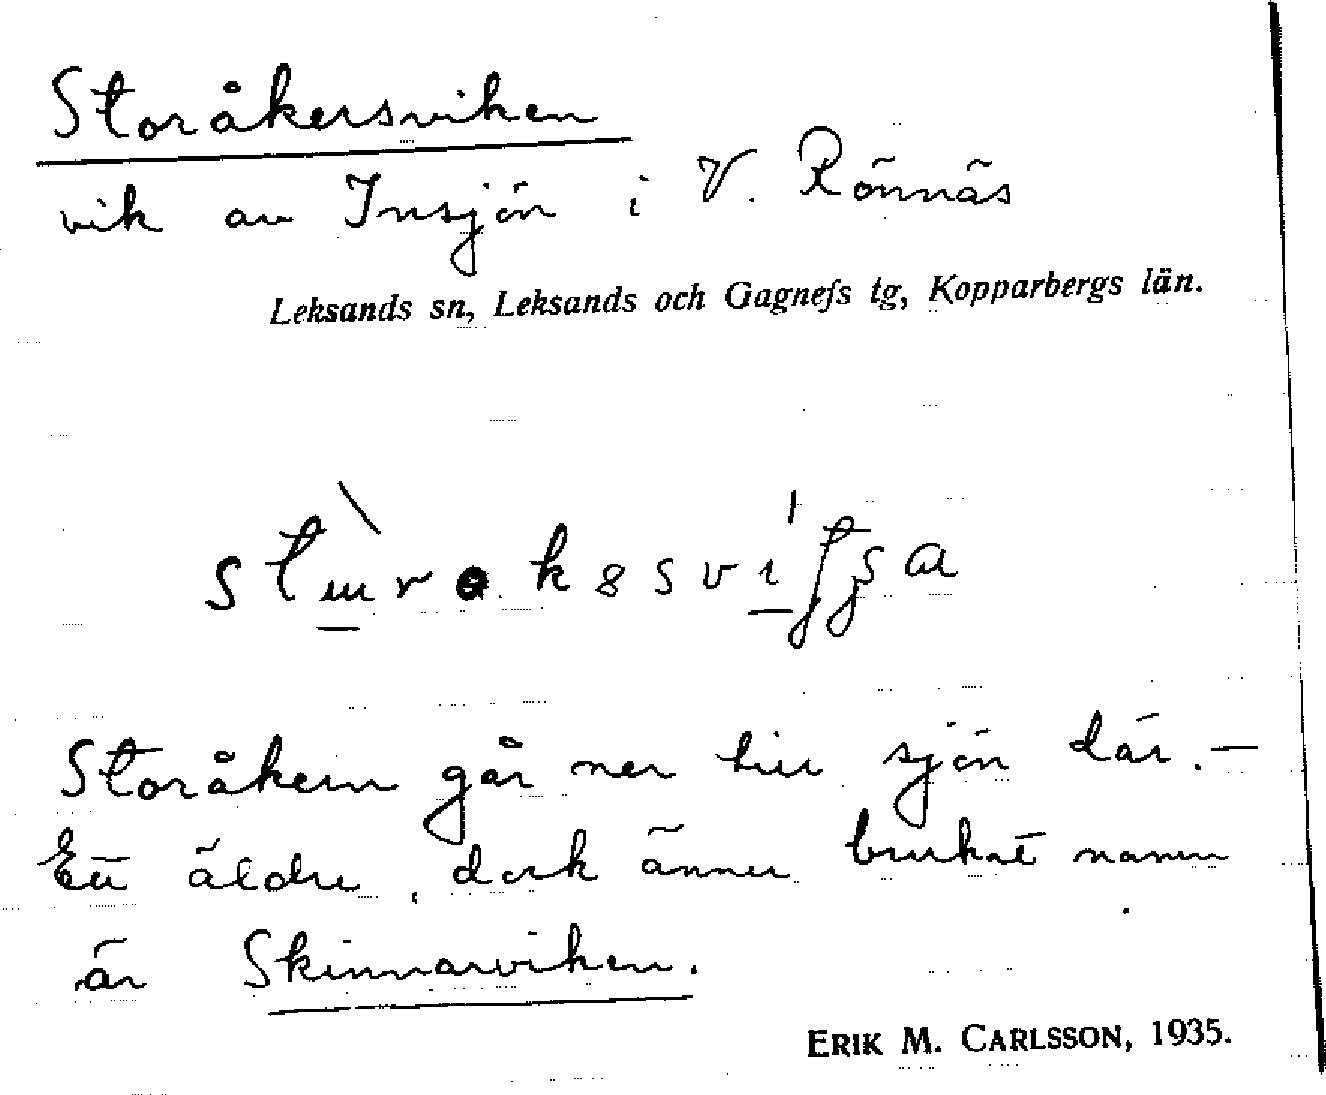 Storåkersviken
vik av Insjön i V. Rönnäs
Leksands sn, Leksands och Gagnefs tg, Kopparbergs län.
Storåkern går ner till sjön där. —
Ett äldre, dock ännu brukat namn
är Skinnarviken.
ERIK M. CARLSSON, 1935.